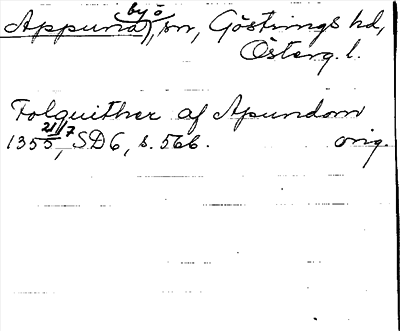 Appuna byö), sn, Göstrings hd,
Österg. l.
Folquither af Apundom
1355 21/7, SD 6, s. 566. orig.